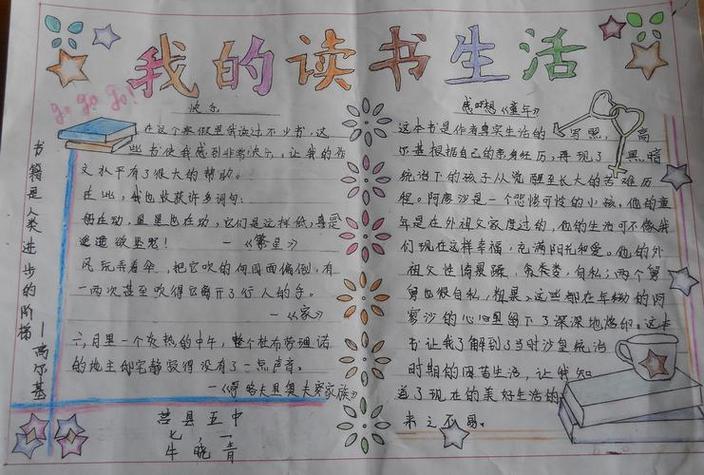 我的读书生活
go go go!
书籍是人类进步的阶梯
——高尔基
快乐
在这个寒假里我读过不少书，这
些书使我感到非常快乐，让我的作
文水平有了很大的帮助。
在此，我也收获许多词句：
——《繁星》
风玩弄着伞，把它吹的向四面偏倒，有
一两次甚至吹得它离开了行人的手。
——《家》
六月里一个炎热的中午，整个杜布劳维诺
的地主邸宅静寂得没有了一点声音。
莒县五中
七，一
牛晓青
感想《童年》
这本书是作者真实生活的写照，高
尔基根据自己的亲身经历，再现了黑暗
统治下的孩子从觉醒至长大的苦难历
程。阿廖沙是一个悲惨可怜的小孩。他的童
年是在外祖父家度过的，他的生活可不像我
们现在这样幸福，充满阳光和爱。他的外
祖父性情暴躁，贪婪，自私；两个舅
舅也很自私，粗暴。这些都在年幼的阿
廖沙的心里留下了深深地烙印。这本
书让我了解到了当时沙皇统治
时期的困苦生活，让我知
道了现在的美好生活的
来之不易。